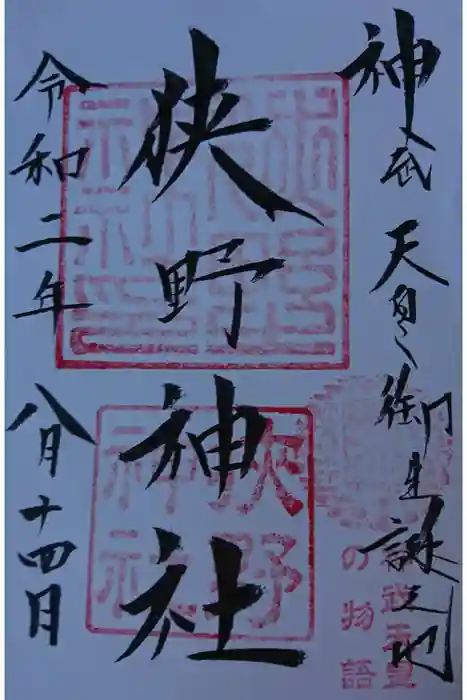 神武天皇御生誕之地
狭野神社
令和二年八月十四日
狭野
神社
の物語